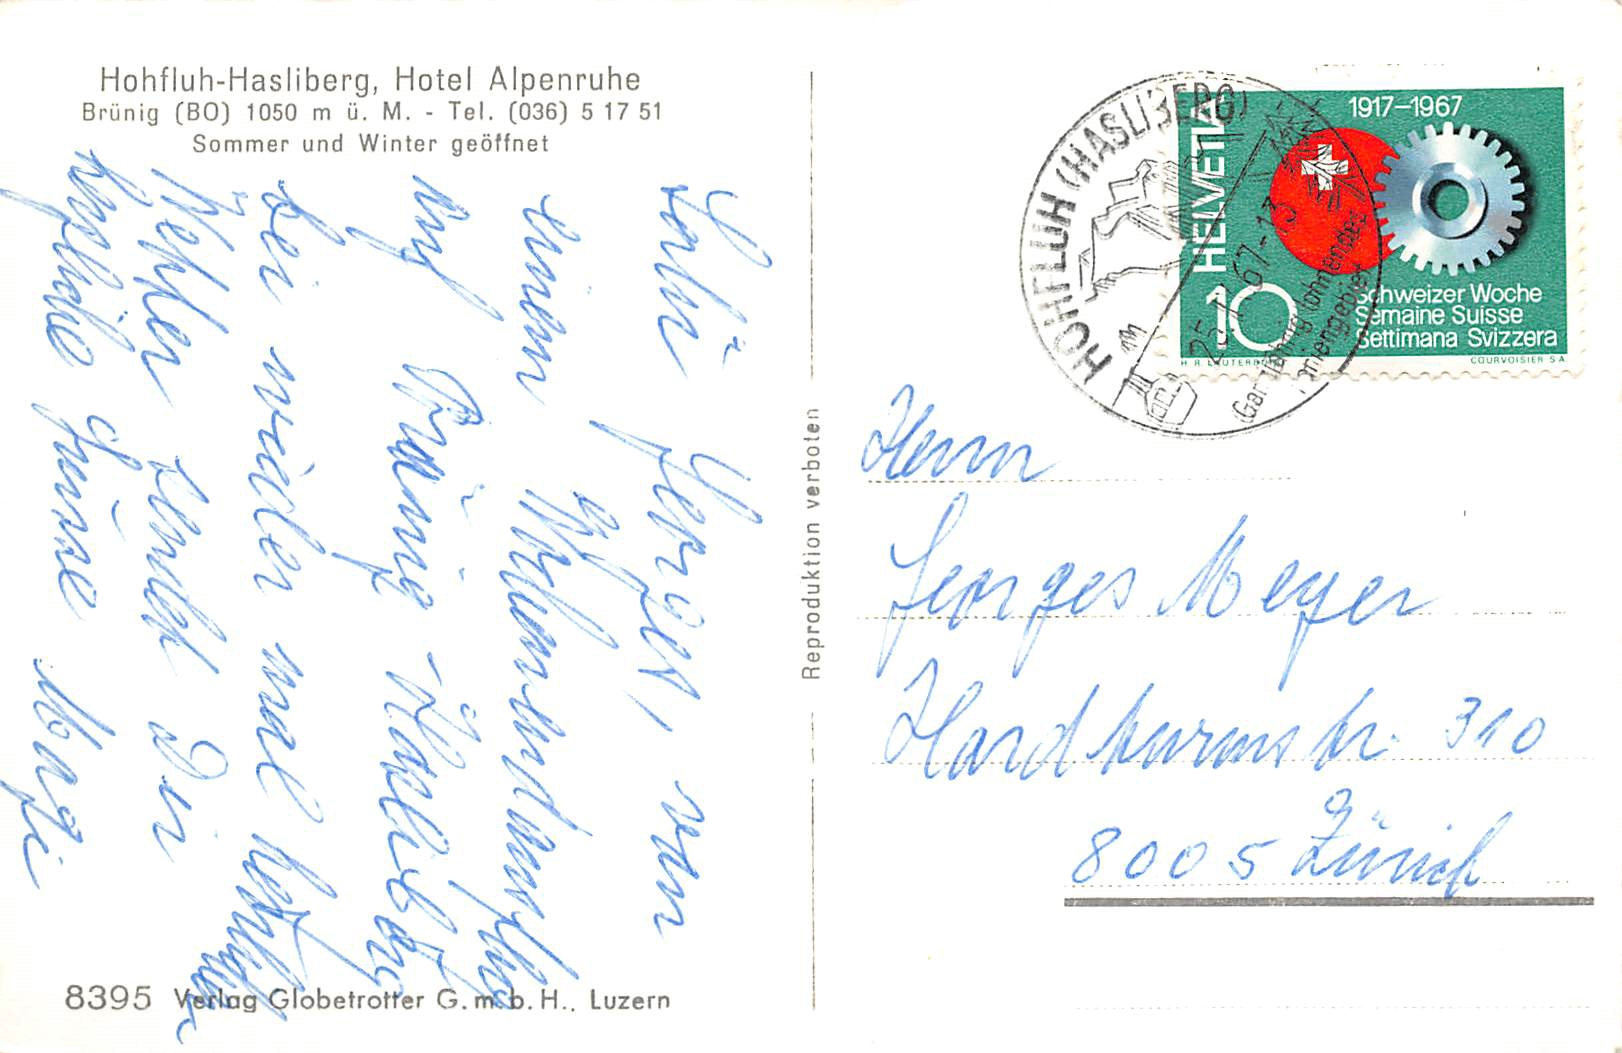 Hohfluh-Hasliberg, Hotel Alpenruhe
Brünig (BO) 1050 m ü. M. - Tel. (036) 5 17 51
Sommer und Winter geöffnet
Salü Herzer, von
einem
auf Brünig-Hasliberg
bei wieder mal
sendet Dir
herzliche Grüsse Magi
8395 Verlag Globetrotter G.m.b.H., Luzern
Reproduktion verboten
HOHFLUH (HASLIBERG)
25.7.67-13
HELVETIA
1917–1967
10
Schweizer Woche
Semaine Suisse
Settimana Svizzera
COURVOISIER S A
Herrn
Georges Meyer
Hardturmstr. 310
8005 Zürich